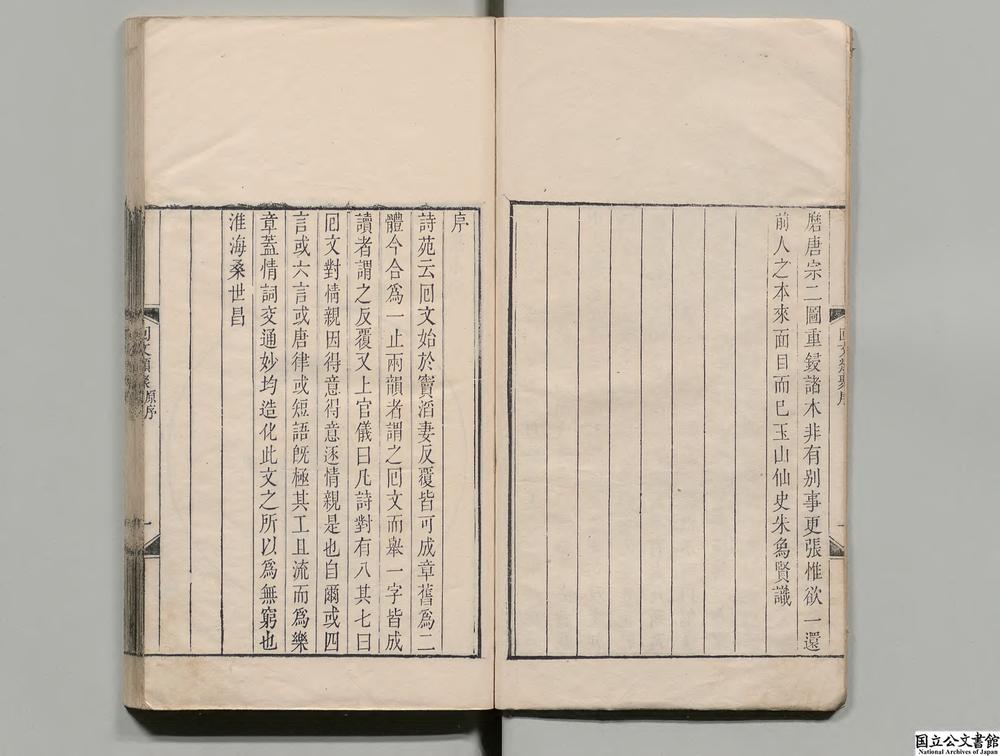 磨唐宗二圖重鋟諸木非有别事更張惟欲一還
前人之本來面目而已玉山仙史朱象賢識
回文類聚序
序
詩苑云回文始於竇滔妻反覆皆可成章舊爲二
體今合爲一止兩韻者謂之回文而舉一字皆成
讀者謂之反覆又上官儀曰凡詩對有八其七曰
回文對情親因得意得意逐情親是也自爾或四
言或六言或唐律或短語既極其工且流而爲樂
章蓋情詞交通妙均造化此文之所以爲無窮也
淮海桑世昌
回文類聚原序
一
国立公文書館
National Archives of Japan